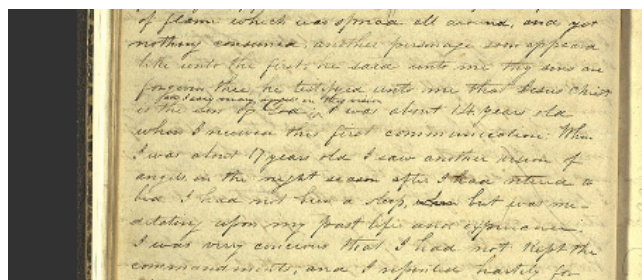 of flame which was spread all around, and yet
nothing consumed. another personage soon appeard
like unto the first: he said unto me thy sins are
forgiven thee, he testifyed unto me that Jesus Christ
is the son of God; I was about 14 years old
& I saw many angels in this vision
when I received this first communication: When
I was about 17 years old I saw another vision of
angels in the night season after I had retired to
bed I had not been a sleep, but was me-
ditating upon my past life and experience.
I was very concious that I had not kept the
commandments, and I repented hartily for